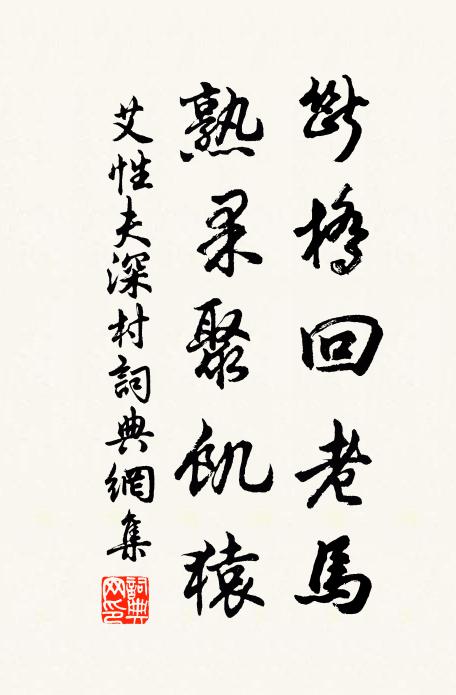 斷橋回老馬
熟果聚飢猿
艾性夫深村詞典網集
詞典網印